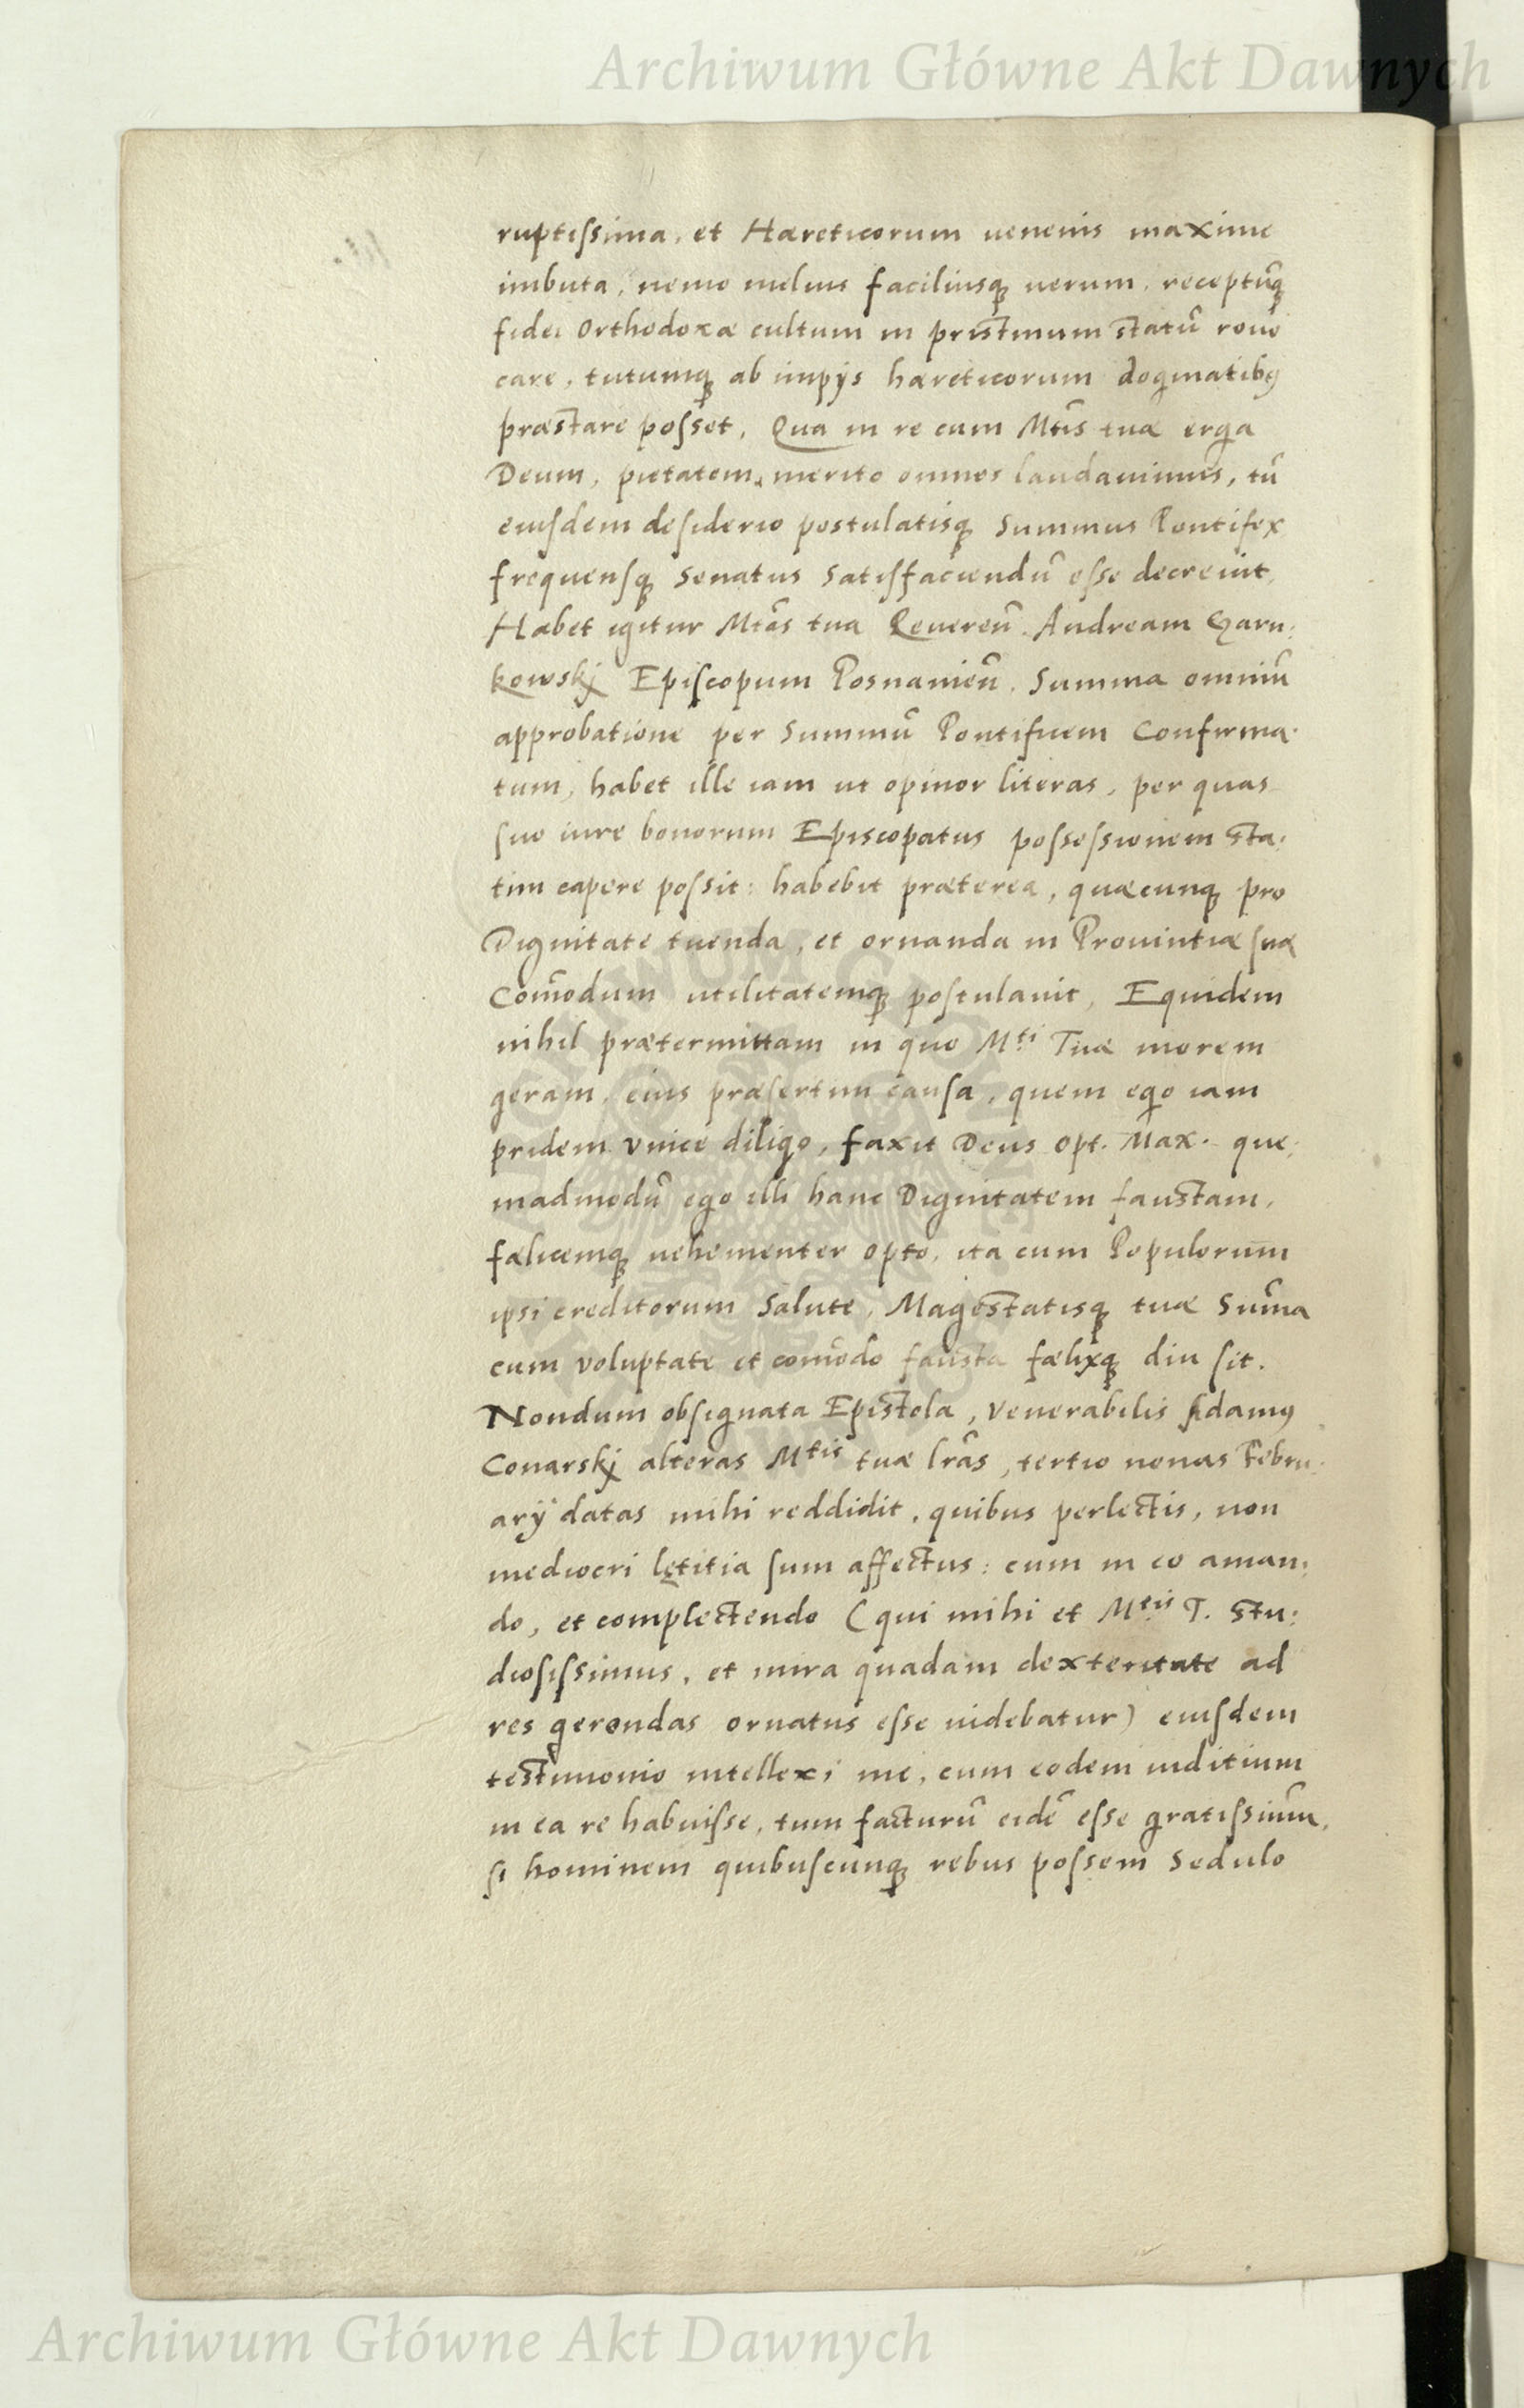 Archiwum Główne Akt Dawnych
ruptissima, et Hæreticorum uenenis maxime
imbuta, nemo melius faciliusq uerum, receptūq
fidei Orthodoxæ cultum in pristinum statū reuo
care, tutumq ab impijs hæreticorum dogmatibꝰ
præstare posset. Qua in re cum Mtis tuæ erga
Deum, pietatem, merito omnes laudauimus, tū
eiusdem desiderio postulatisq Summus Pontifex
frequensq Senatus satisfaciendū esse decreuit.
Habet igitur Mtas tua Reuereñ. Andream Czarn:
kowskj Episcopum Posnanieñ. Summa omniū
approbatione per Summū Pontificem Confirma-
tum, habet ille iam ut opinor literas, per quas
suo iure bonorum Episcopatus possessionem sta:
tim capere possit: habebit præterea, quæcunq pro
Dignitate tuenda, et ornanda in Prouintia sua
Com̄odum utilitatemq postulauit, Equidem
nihil prætermittam in quo Mti Tuæ morem
geram, eius præsertim causa, quem ego iam
pridem vnice diligo, faxit Deus Opt. Max. que:
madmodū ego illi hanc Dignitatem faustam,
fælicemq uehementer opto, ita cum Populorum
ipsi creditorum Salute, Magestatisq tuæ Sum̄a
cum voluptate et com̄odo fausta fælixq diu sit.
Nondum obsignata Epistola, Venerabilis Adamꝰ
Conarskj alteras Mtis tuæ lr̄as, tertio nonas Febru:
arij datas mihi reddidit, quibus perlectis, non
mediocri lętitia sum affectus: cum in eo aman:
do, et complectendo (qui mihi et Mtis T. stu:
diosissimus, et mira quadam dexteritate ad
res gerendas ornatus esse uidebatur) eiusdem
testimonio intellexi me, cum eodem inditium
in ea re habuisse, tum facturū eidē esse gratissim̄u,
si hominem quibuscunq rebus possem sedulo
Archiwum Główne Akt Dawnych